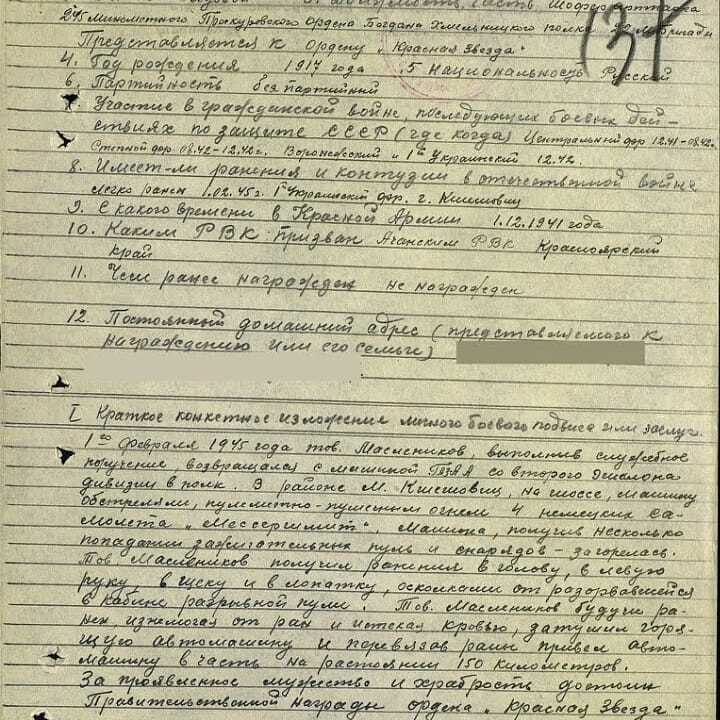 должность, часть Шофер артпарка
295 минометного Проскуровского Ордена Богдана Хмельницкого полка
Представляется к ордену „Красная Звезда"
4. Год рождения 1917 года 5 Национальность Русский
6. Партийность беспартийный
7. Участие в гражданской войне, последующих боевых дей-
ствиях по защите СССР (где когда) Центральный фр 12.41-08.42г.
Степной фр 08.42-12.42г. Воронежский и 1й Украинский 12.42.
8. Имеет-ли ранения и контузии в отечественной войне
легко ранен 1.02.45г. 1й Украинский фр. г.
9. С какого времени в Красной Армии 1.12.1941 года
10. Каким РВК призван Ачанским РВК Красноярский
край
11. Чем ранее награжден не награжден
12. Постоянный домашний адрес (представляемого к
награждению или его семьи)
137
I Краткое конкетное изложение личного боевого подвига или заслуг.
1го февраля 1945 года тов. Маслеников, выполнив служебное
поручение, возвращался с машиной со второго эшелона
дивизии в полк. В районе М. на шоссе, машину
обстреляли, пулеметно-пушечным огнем 4 немецких са-
молета „Мессершмит". Машина, получив несколько
попадании зажигательных пуль и снарядов - загорелась.
Тов. Маслеников получил ранения в голову, в левую
руку в щеку и в лопатку, осколками от разорвавшейся
в кабине разрывной пули. Тов. Маслеников будучи ра-
нен, изнемогая от ран и истекая кровью, затушил горя-
щую автомашину и перевязав раны привел авто-
машину в часть на растоянии 150 километров.
За проявленное мужество и храбрость достоин
Правительственной награды ордена „Красная Звезда"